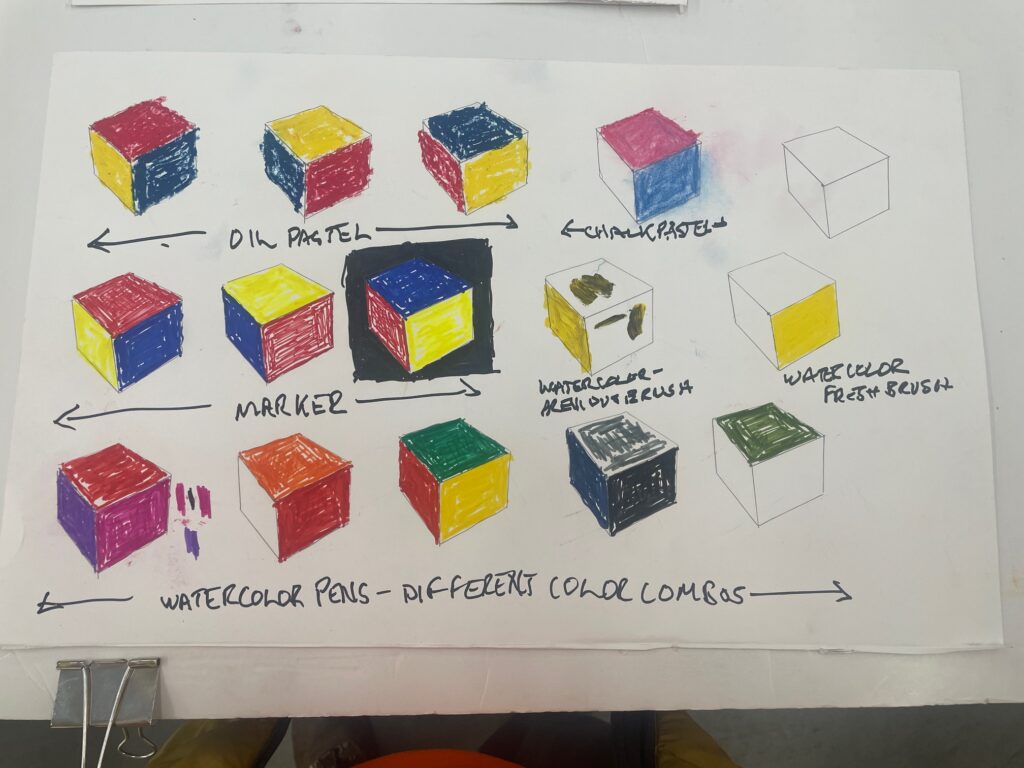 OIL PASTEL
CHALK PASTEL
MARKER
WATERCOLOR -
PREVIOUS BRUSH
WATERCOLOR
FRESH BRUSH
WATERCOLOR PENS - DIFFERENT COLOR COMBOS